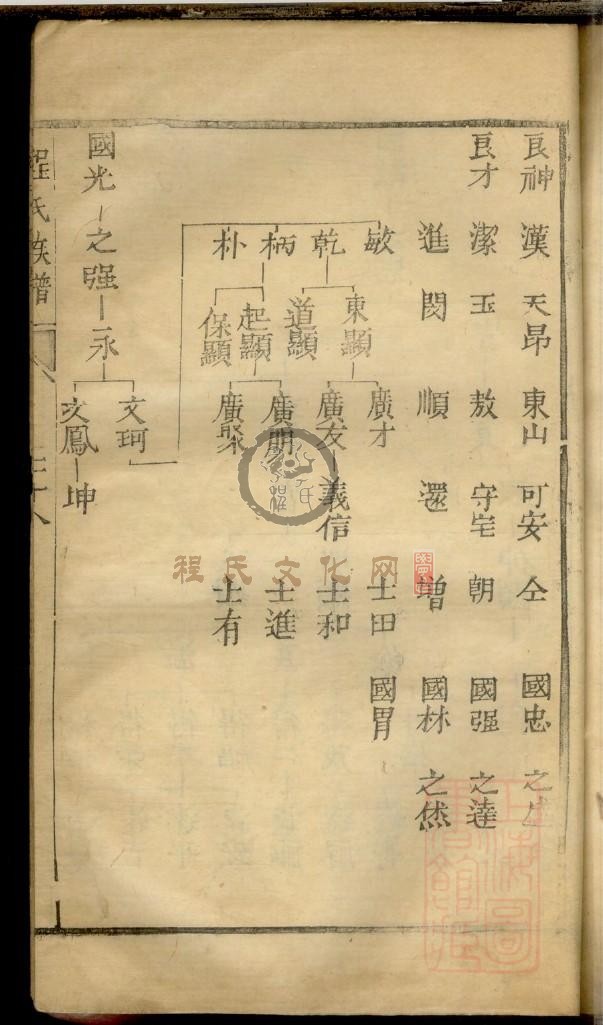 良神 漢 天昂 東山 可安 仝 國忠 之
良才 潔 玉 敖 守宅 朝 國强 之達
進 閔 順 還 增 國林 之㤠
敏 東顯 廣才 士田 國胃
乾 道顯 廣友 義信 士和
柄 起顯 廣明 士進
朴 保顯 廣聚 士有
國光 之强 永 文珂
文鳳 坤
程氏族譜
程氏文化网